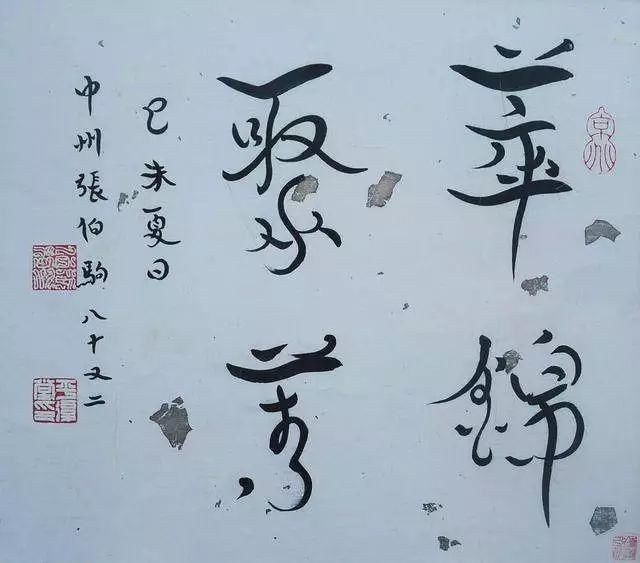 萃錦
聚
己未夏日
中州張伯駒八十又二